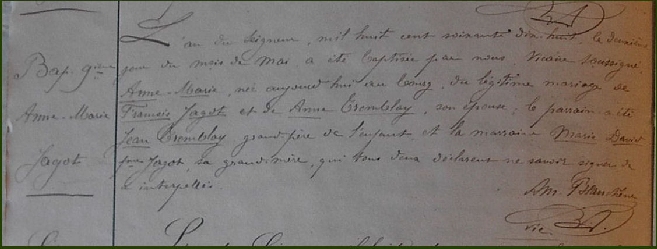 Bap. 9ème
Anne-Marie
Jagot
L'an du Seigneur, mil huit cent soixante dix huit, le dernier
jour du mois de Mai a été baptisée par nous Vicaire soussigné
Anne-Marie, née aujourd'hui au bourg, du légitime mariage de
Francis Jagot et de Anne Tremblay, son épouse. le parrain a été
Jean Tremblay grand-père de l'enfant, et la marraine Marie David
Jagot, sa grand'mère, qui tous deux déclarent ne savoir signer de
ce interpellés.
Am.
Vic